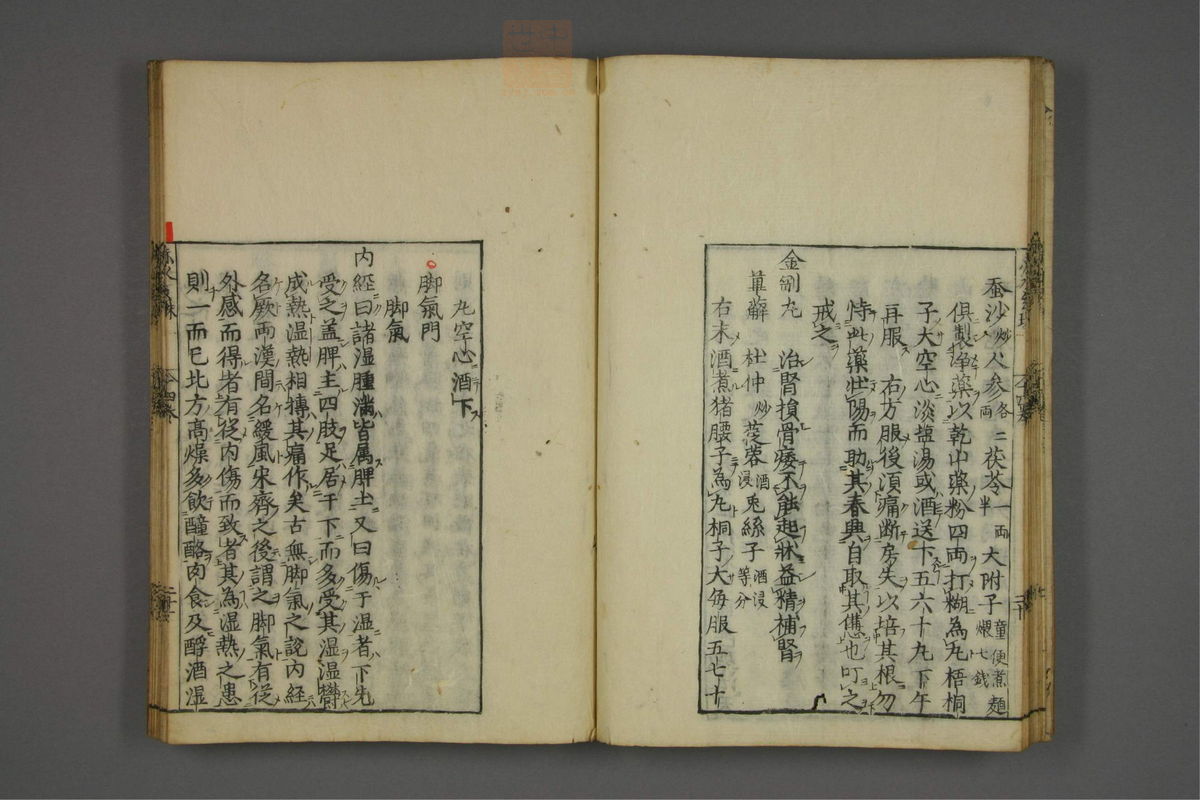 蚕沙炒人参各二両茯苓一両半大附子童便煮麺煨七銭
俱製浄薬以乾山薬粉四両打糊為丸梧桐
子大空心淡塩湯或酒送下五六十丸下午
再服 右方服後須痛断房失以培其根勿
恃此薬壮陽而助其春興自取其愆也叮之
戒之
金剛丸 治腎損骨痿不能起牀益精補腎
萆薢 杜仲炒 蓯蓉酒浸 兎絲子酒浸等分
右末酒煮猪腰子為丸桐子大毎服五七十
丸空心酒下
脚氣門
脚氣
内經曰諸湿腫満皆属脾土又曰傷于湿者下先
受之蓋脾主四肢足居于下而多受其湿湿鬱
成熱湿熱相摶其痛作矣古無脚氣之説内經
名厥両漢間名緩風宋齊之後謂之脚氣有從
外感而得者有從内傷而致者其為湿熱之患
則一而已北方髙燥多飲醯酪肉食及醇酒湿